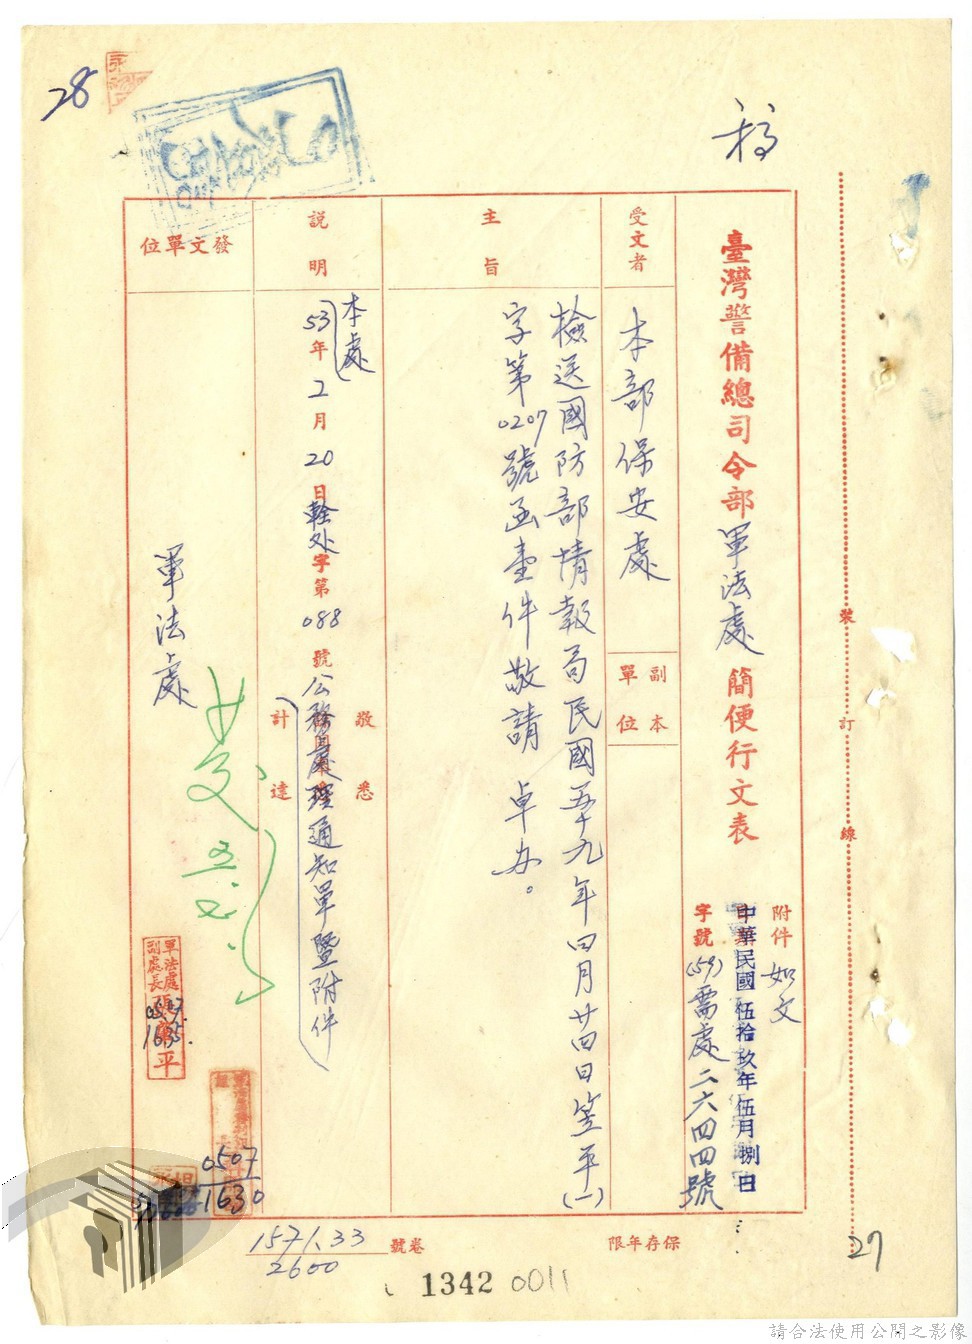 28
稿
臺灣警備總司令部軍法處簡便行文表
附件 如文
中華民國伍拾玖年伍月捌日
字號 (59)需處二六四四號
受文者
本部保安處
副本單位
主旨
檢送國防部情報局民國五十九年四月廿四日笠平(一)
字第0207號函壹件敬請 卓办。
說明
本處
53年2月20日
字第088號公務處理通知單暨附件
敬悉
計達
發文單位
軍法處
軍法處
副處長
平
0507
1635.
0507
1630
裝
訂
線
保存年限
卷號
1571.33
2600
27
1342 0011
請合法使用公開之影像